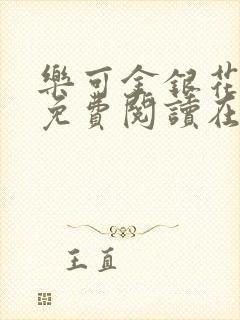 樂可金銀花
免費閱讀在
王直